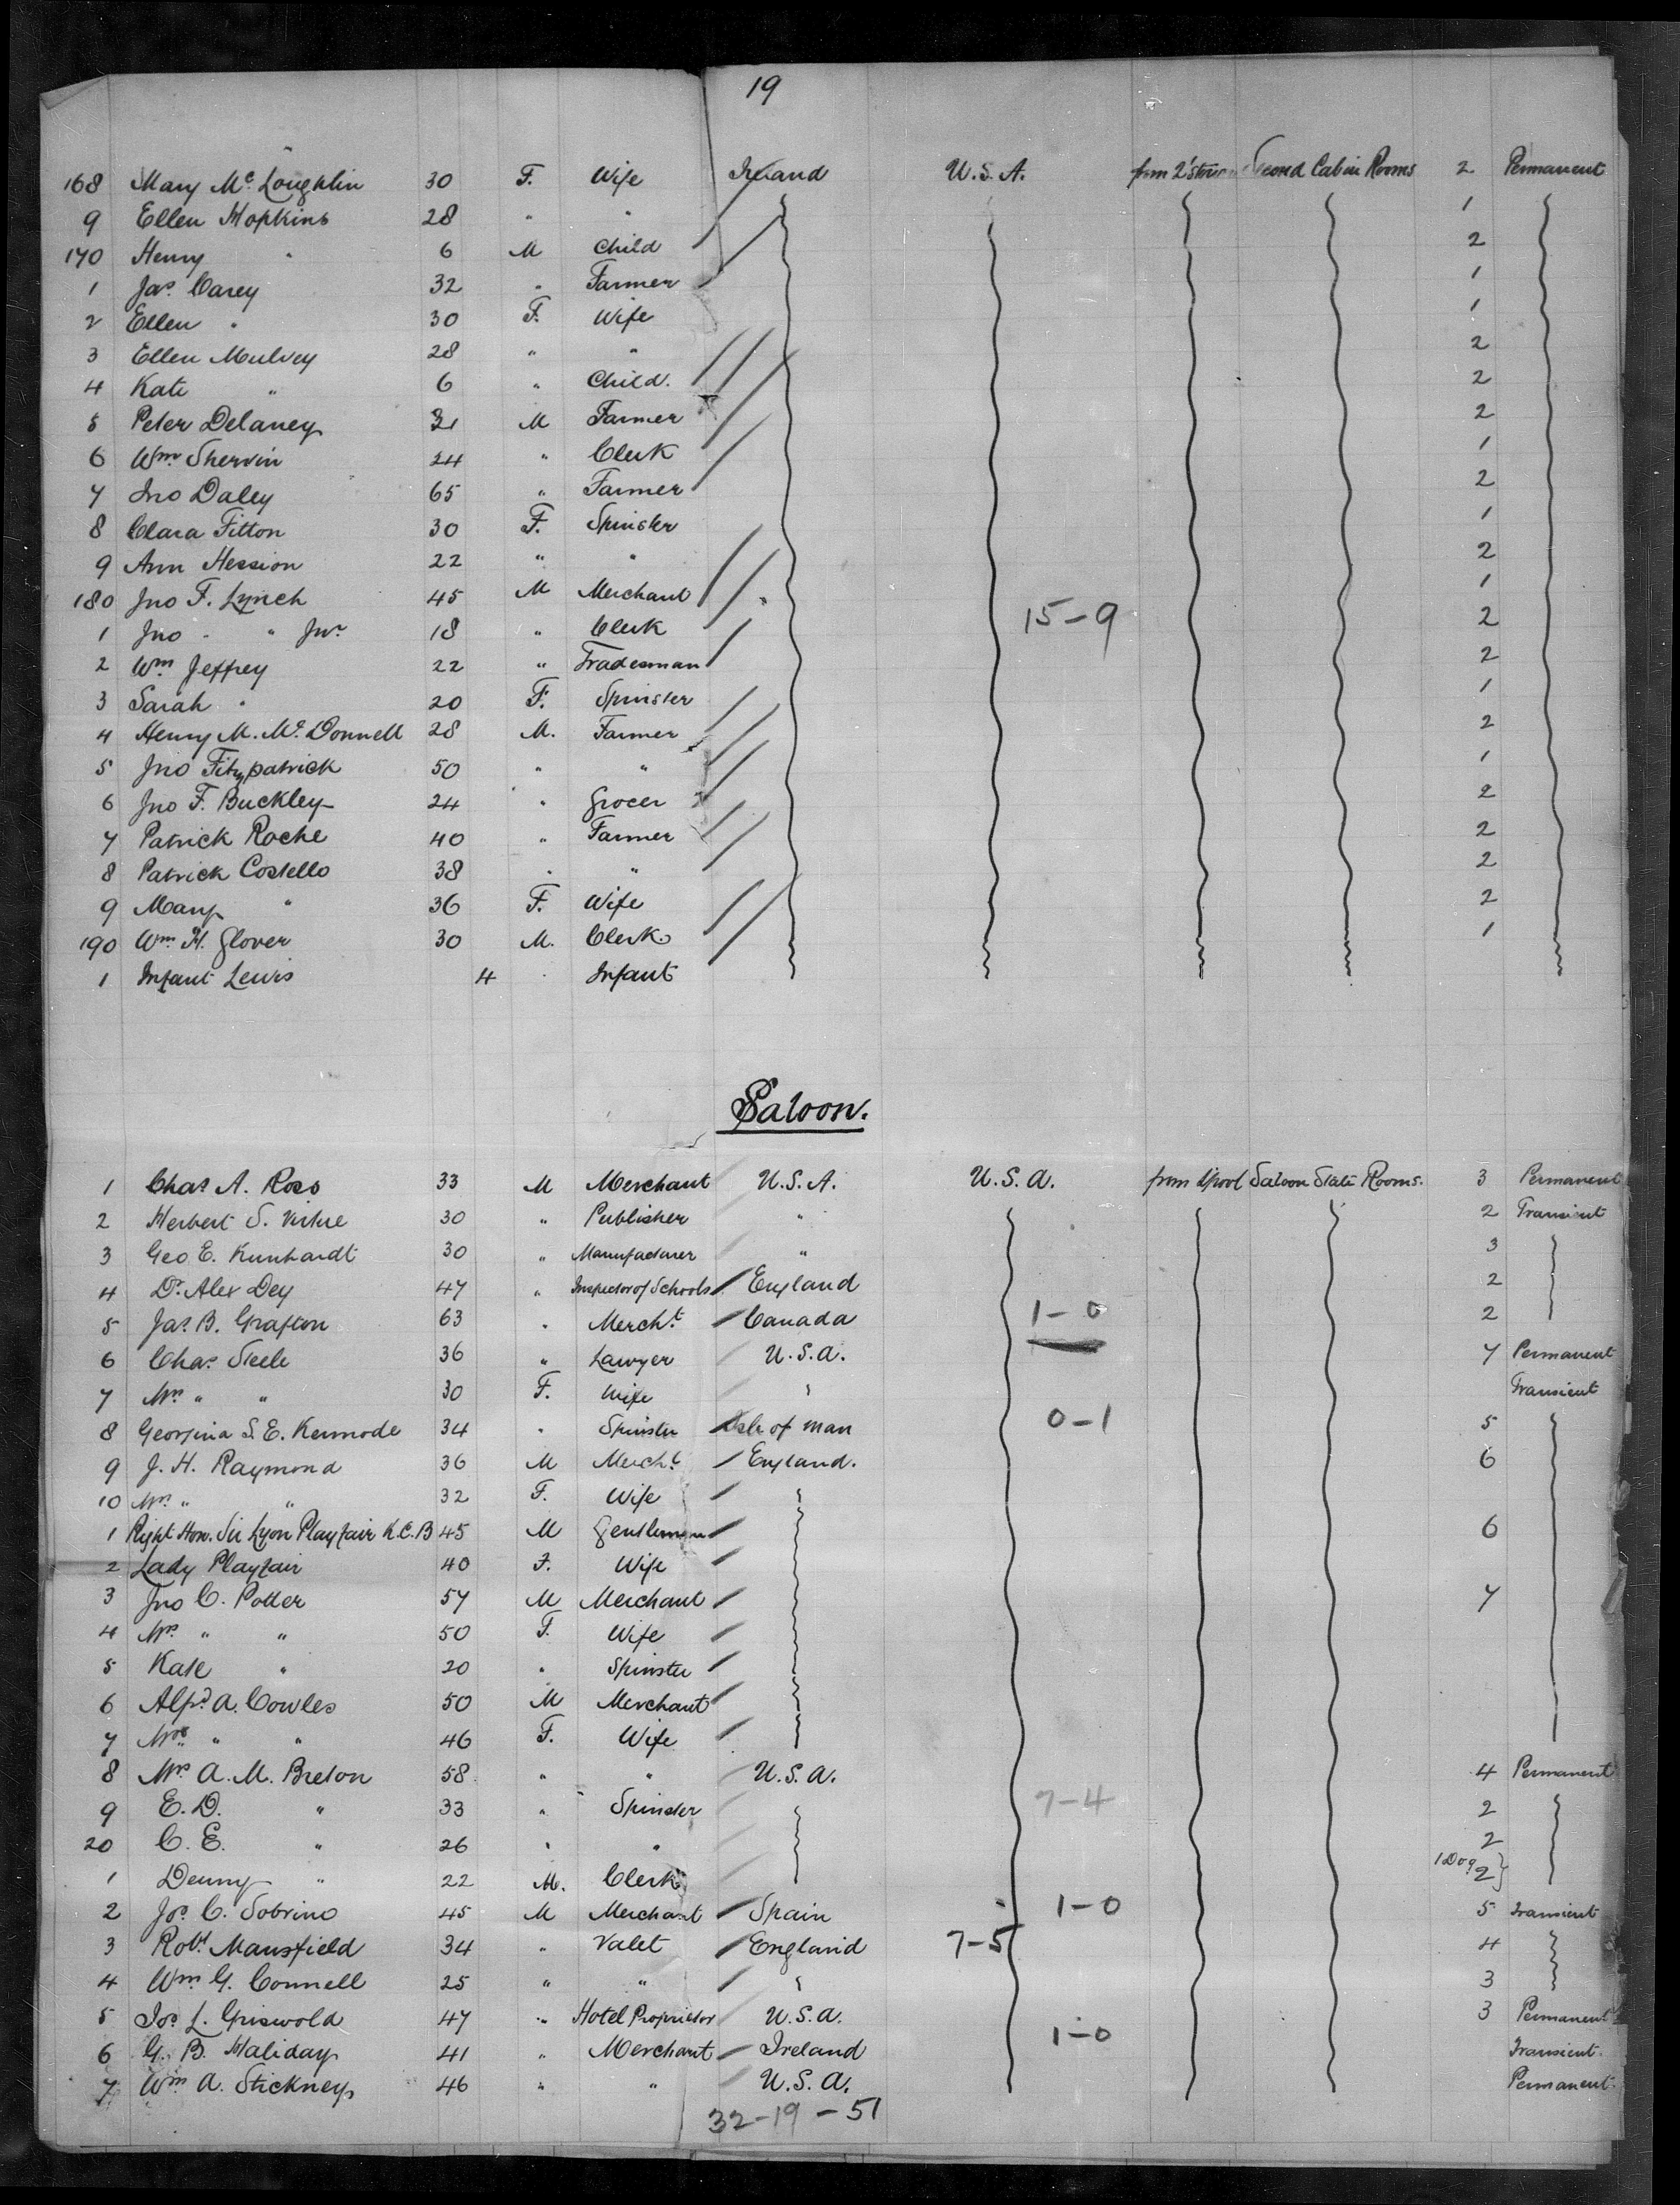 19
168 Mary Mc. Loughlin 30 F. Wife Ireland U.S.A. from Second Cabin Rooms 2 Permanent
9 Ellen Hopkins 28 " " 1
170 Henry " 6 M Child 2
1 Jas. Carey 32 " Farmer 1
2 Ellen " 30 F. Wife 1
3 Ellen Mulvey 28 " " 2
4 Kate " 6 " Child. 2
5 Peter Delaney 31 M Farmer 2
6 Wm. Shervin 24 " Clerk 1
7 Jno Daley 65 " Farmer 2
8 Clara Fitton 30 F. Spinster 1
9 Ann Hession 22 " " 2
180 Jno F. Lynch 45 M Merchant 1
15-9
1 Jno " " Jnr. 18 " Clerk 2
2 Wm. Jeffrey 22 " Tradesman 2
3 Sarah " 20 F. Spinster 1
4 Henry M. Mc. Donnell 28 M. Farmer 2
5 Jno Fitzpatrick 50 " " 1
6 Jno F. Buckley 24 " Grocer 2
7 Patrick Roche 40 " Farmer 2
8 Patrick Costello 38 " " 2
9 Mary " 36 F. Wife 2
190 Wm. H. Glover 30 M. Clerk. 1
1 Infant Lewis 4 " Infant
Saloon.
1 Chas. A. Ross 33 M Merchant U.S.A. U.S.A. from L'pool Saloon State Rooms. 3 Permanent
2 Herbert S. Virtue 30 " Publisher " 2 Transient
3 Geo E. Kunhardt 30 " Manufacturer " 3
4 Dr. Alex Dey 47 " Inspector of Schools England 2
5 Jas. B. Grafton 63 " Mercht. Canada 1-0 2
6 Chas. Steele 36 " Lawyer U.S.A. 7 Permanent
7 Mrs " " 30 F. Wife " Transient
8 Georgina S. E. Kermode 34 " Spinster Isle of Man 0-1 5
9 J. H. Raymond 36 M Mercht. England. 6
10 Mrs. " " 32 F. Wife
1 Right Hon. Sir Lyon Playfair K.C.B 45 M Gentleman 6
2 Lady Playfair 40 F. Wife
3 Jno C. Potter 57 M Merchant 7
4 Mrs. " " 50 F. Wife
5 Kate " 20 " Spinster
6 Alfd. A. Cowles 50 M Merchant
7 Mrs " " 46 F. Wife
8 Mrs A. M. Breton 58 " " U.S.A. 4 Permanent
9 E. D. " 33 " Spinster 7-4 2
20 C. E. " 26 " " 2
1 Denny " 22 M. Clerk 1 Dog 2
2 Jos. C. Sobrino 45 M Merchant Spain 1-0 5 Transient
3 Robt. Mansfield 34 " Valet England 7-5 4
4 Wm G. Connell 25 " " " 3
5 Jos. L. Griswold 47 " Hotel Proprietor U.S.A. 3 Permanent
6 G. B. Haliday 41 " Merchant Ireland 1-0 Transient.
7 Wm A. Stickney 46 " " U.S.A. Permanent.
32-19-51